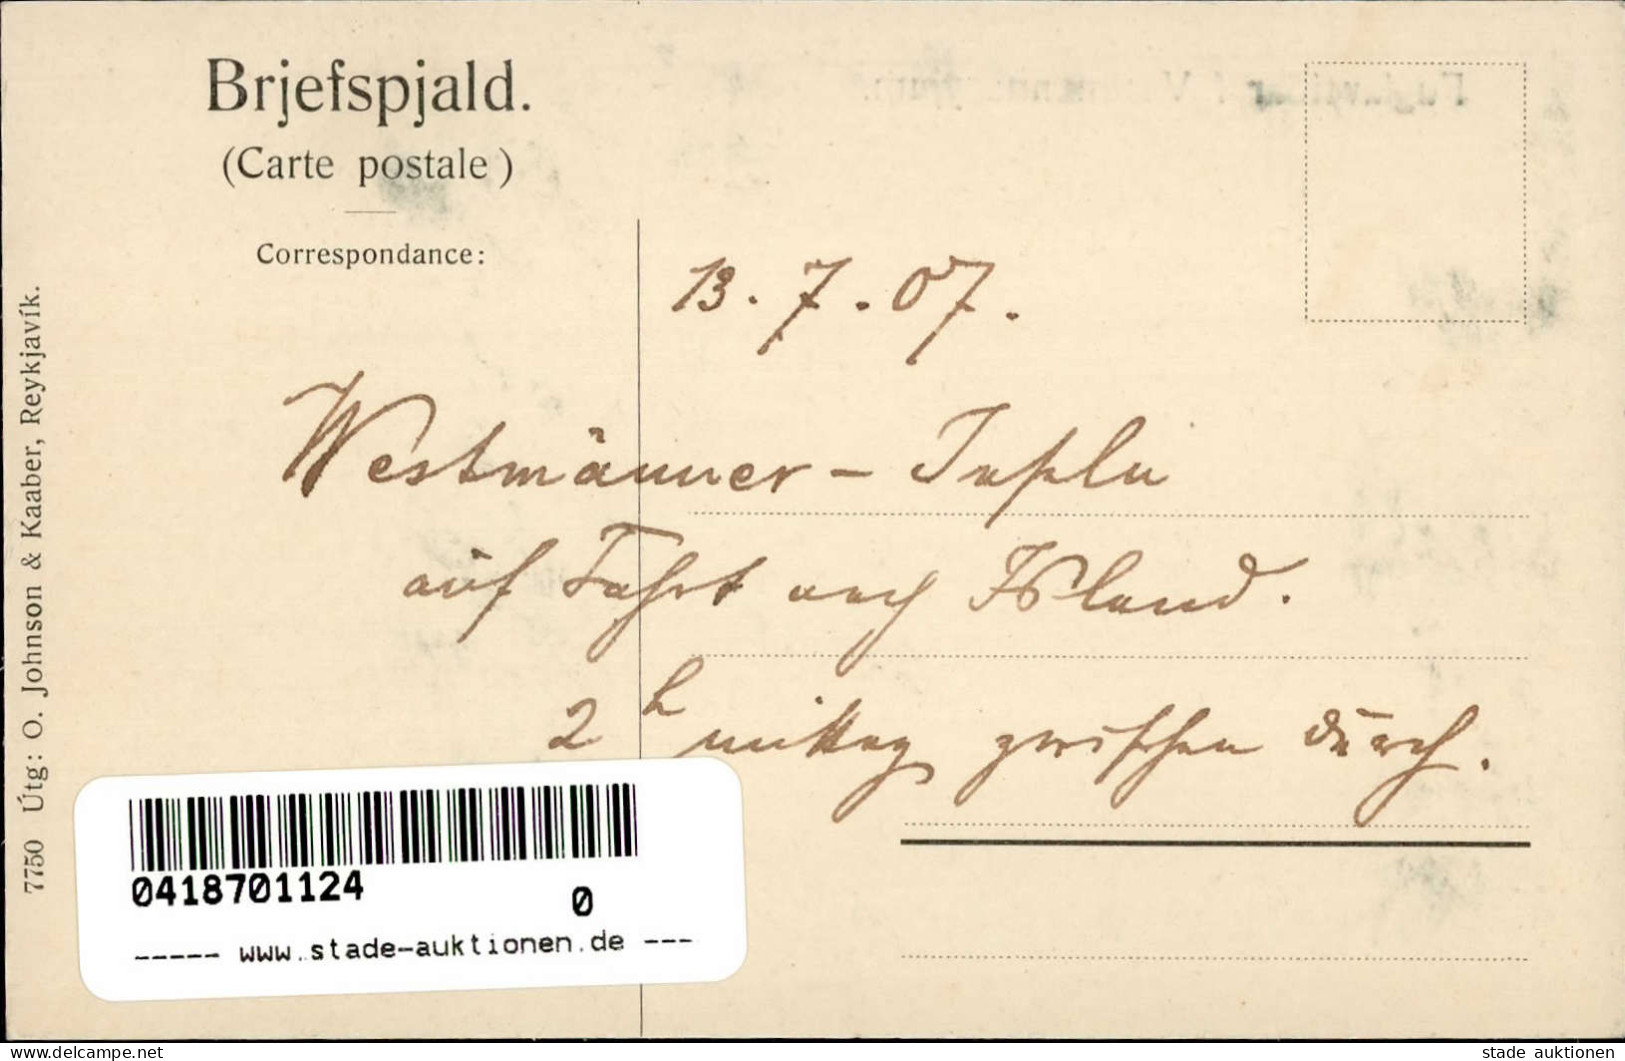 Brjefspjald.
(Carte postale)
Correspondance:
13. 7. 07.
Westmänner - Inseln
auf Fahrt nach Island.
2 h mittag zwischen durch.
7750 Útg: O. Johnson & Kaaber, Reykjavík.
0418701124
0
----- www.stade-auktionen.de ---
https://www.delcampe.net
stade auktionen